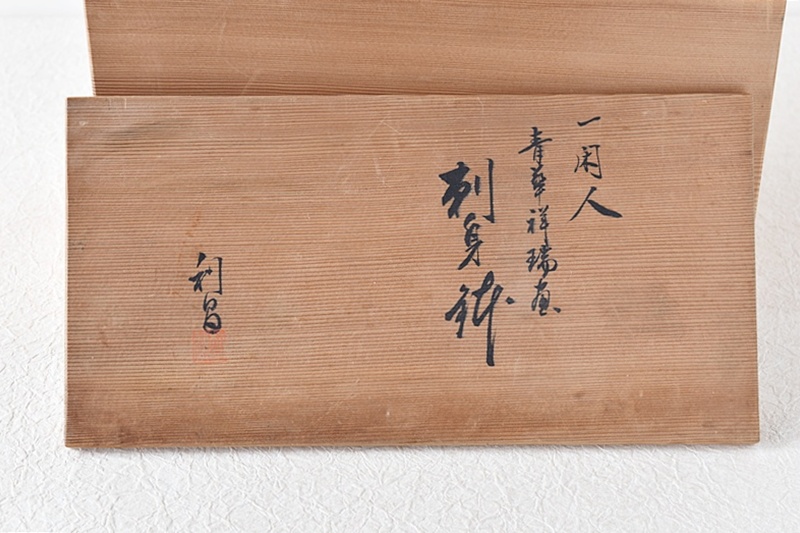 一閑人
青華祥瑞画
刺身鉢
利昌